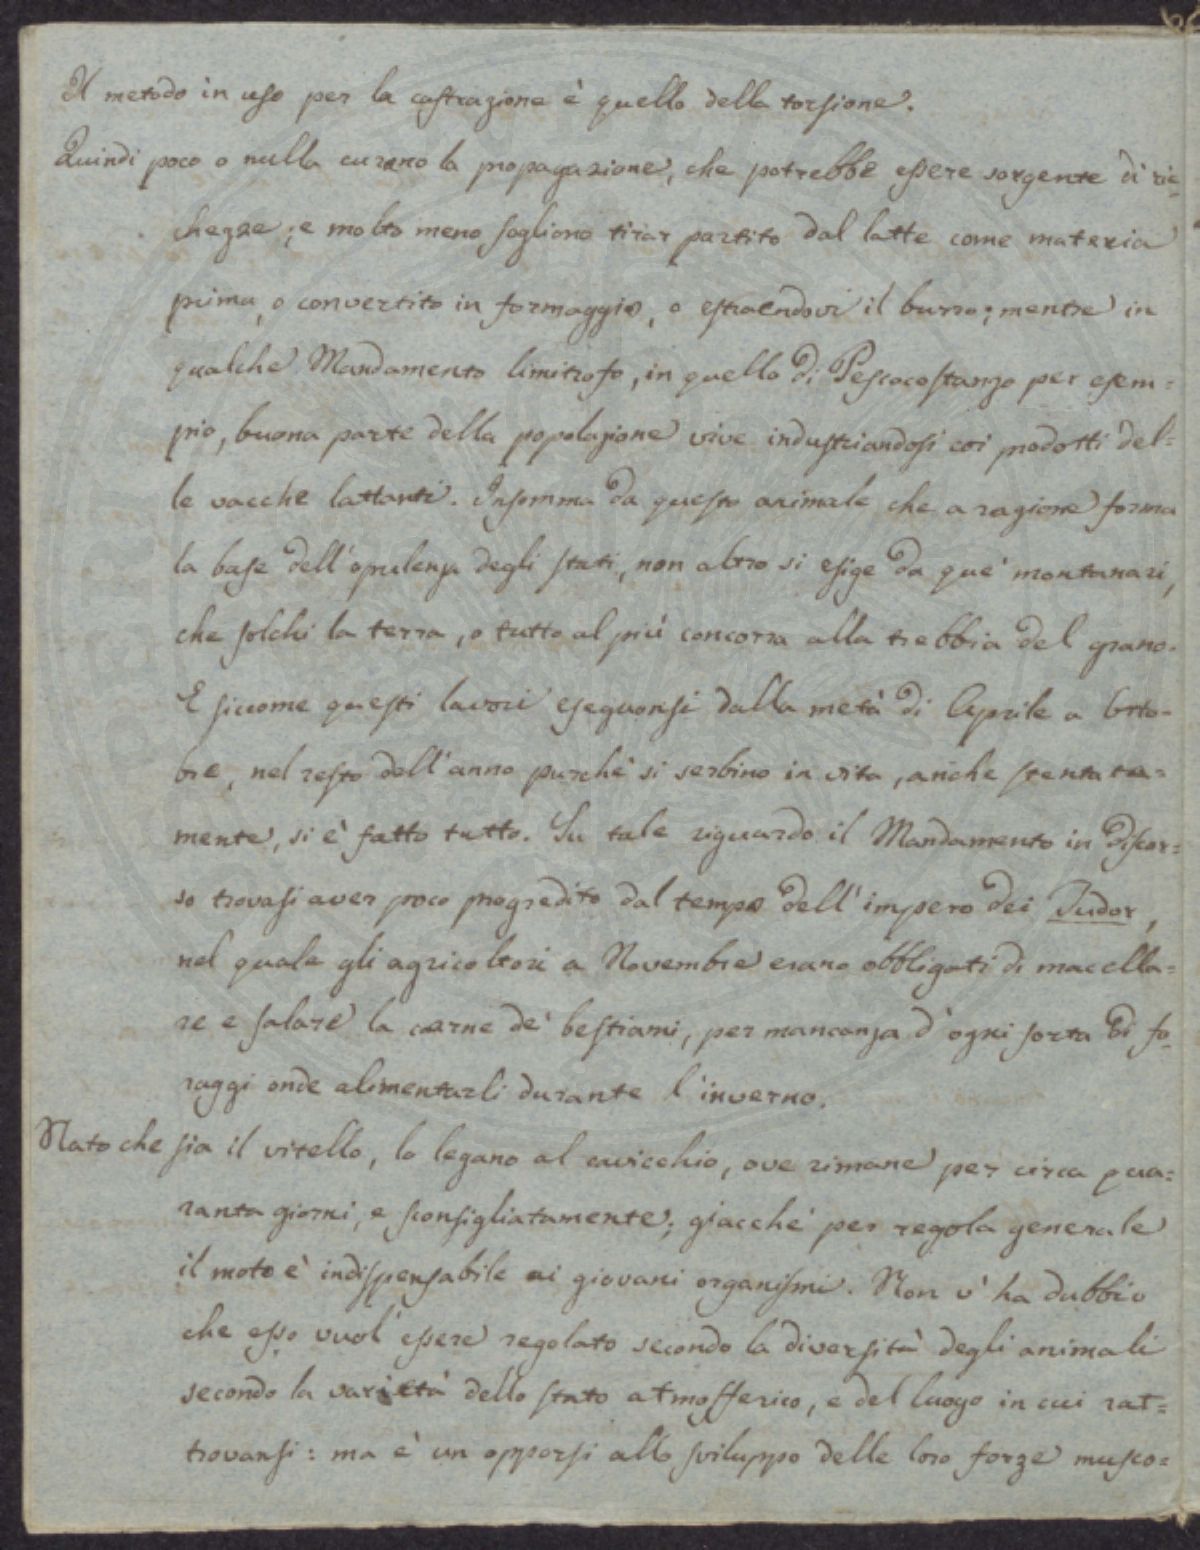 Il metodo in uso per la castrazione è quello della torsione.
Quindi poco o nulla curano la propagazione, che potrebbe essere sorgente di ric-
chezze; e molto meno sogliono tirar partito dal latte come materia
prima, o convertito in formaggio, o estraendovi il burro; mentre in
qualche Mandamento limitrofo, in quello di Pescocostanzo per esem=
pio, buona parte della popolazione vive industriandosi coi prodotti del=
le vacche lattanti. Insomma da questo animale che a ragione forma
la base dell'opulenza degli stati, non altro si esige da que' montanari,
che solchi la terra, o tutto al più concorra alla trebbia del grano.
E siccome questi lavori eseguonsi dalla metà di Aprile a Otto-
bre, nel resto dell'anno purchè si serbino in vita, anche stentata=
mente, si è fatto tutto. Su tale riguardo il Mandamento in discor=
so trovasi aver poco progredito dal tempo dell'impero dei Tudor,
nel quale gli agricoltori a Novembre erano obbligati di macella=
re e salare la carne de' bestiami, per mancanza d'ogni sorta di fo-
raggi onde alimentarli durante l'inverno.
Nato che sia il vitello, lo legano al cavicchio, ove rimane per circa qua=
ranta giorni, e sconsigliatamente; giacchè per regola generale
il moto è indispensabile ai giovani organismi. Non v'ha dubbio
che esso vuol essere regolato secondo la diversità degli animali
secondo la varietà dello stato atmosferico, e del luogo in cui rat=
trovansi: ma è un opporsi allo sviluppo delle loro forze musco=